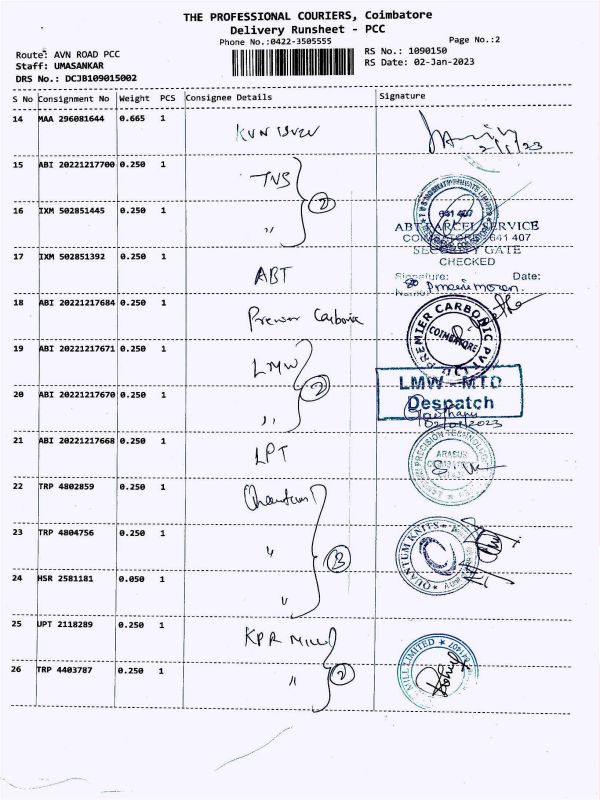 THE PROFESSIONAL COURIERS, Coimbatore
Delivery Runsheet - PCC
Phone No.:0422-3505555
Page No.:2
Route: AVN ROAD PCC
RS No.: 1090150
Staff: UMASANKAR
RS Date: 02-Jan-2023
DRS No.: DCJB109015002
S No Consignment No Weight PCS Consignee Details Signature
14 MAA 296081644 0.665 1
2/1/23
15 ABI 20221217700 0.250 1 TNS
2
16 IXM 502851445 0.250 1 "
641 407
ABT PARCEL SERVICE
641 407
SECURITY GATE
CHECKED
17 IXM 502851392 0.250 1 ABT
Signature: Date:
Name:
18 ABI 20221217684 0.250 1 Premier Carbonic
PREMIER CARBONIC PVT. LTD
COIMBATORE
19 ABI 20221217671 0.250 1 LMW
2
LMW - MTD
Despatch
20 ABI 20221217670 0.250 1 "
02/01/2023
21 ABI 20221217668 0.250 1 LPT
PRECISION TECHNOLOGY
ARASUR
22 TRP 4802859 0.250 1 Quantum
23 TRP 4804756 0.250 1 "
3
QUANTUM KNITS
24 HSR 2581181 0.050 1 "
25 UPT 2118289 0.250 1 KPR MILL
2
MILL LIMITED
26 TRP 4403787 0.250 1 "